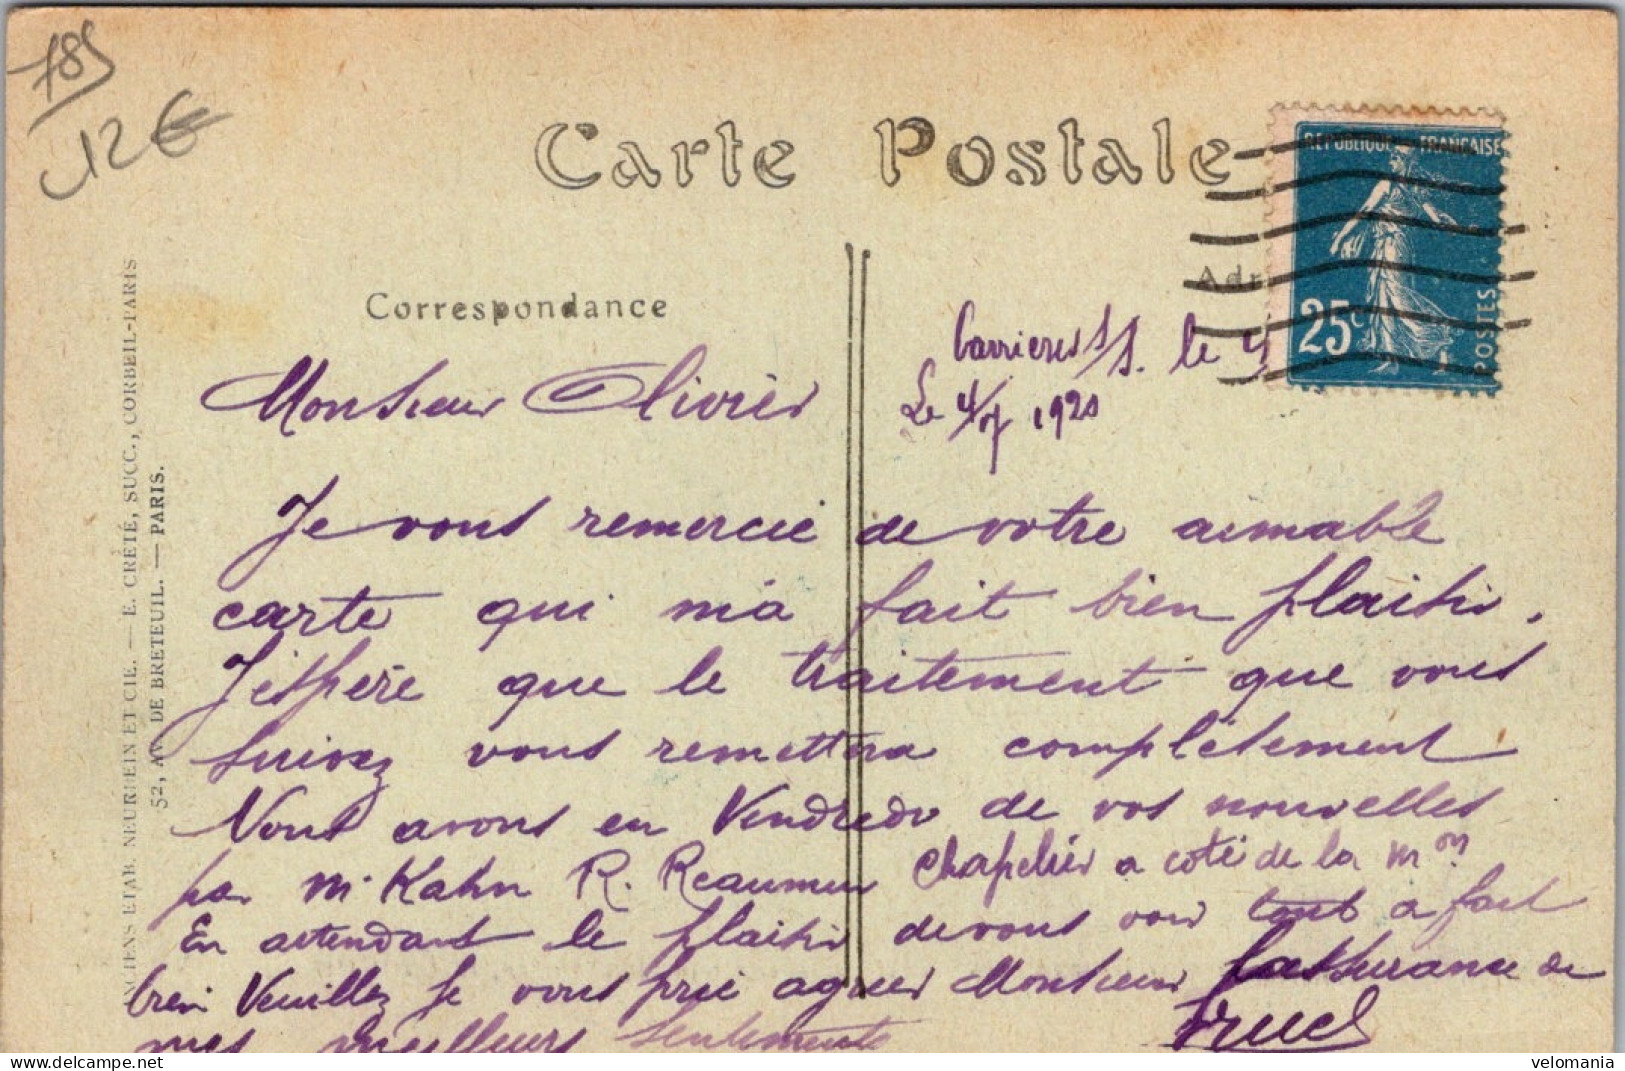 185
12€
Carte Postale
RÉPUBLIQUE FRANÇAISE
25c
POSTES
Adr
Correspondance
ANCIENS ETAB. NEURDEIN ET CIE. — E. CRÉTÉ, SUCC., CORBEIL-PARIS
52, AV. DE BRETEUIL. — PARIS.
Carrieres s/s. le 4
Le 4/7 1921
Monsieur Olivier
Je vous remercie de votre aimable
carte qui m'a fait bien plaisir.
J'espère que le traitement que vous
suivez vous remettra complètement
Nous avons eu Vendredi de vos nouvelles
par Mr Kahn R. Reaumur chapelier a coté de la mon
En attendant le plaisir de vous voir tout a fait
bien Veuillez je vous prie agreer Monsieur l'assurance de
mes meilleurs sentements
velomania